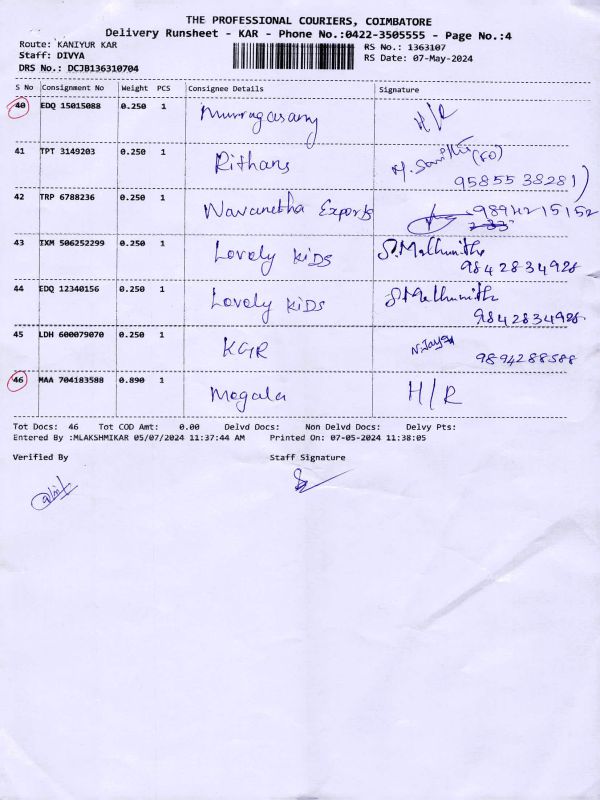 THE PROFESSIONAL COURIERS, COIMBATORE
Delivery Runsheet - KAR - Phone No.:0422-3505555 - Page No.:4
Route: KANIYUR KAR RS No.: 1363107
Staff: DIVYA RS Date: 07-May-2024
DRS No.: DCJB136310704
S No Consignment No Weight PCS Consignee Details Signature
40 EDQ 15015088 0.250 1 Murugasamy H/R
41 TPT 3149203 0.250 1 Rithans
9585538281)
42 TRP 6788236 0.250 1 Navanetha Exports 9894215152
43 IXM 506252299 0.250 1 Lovely KiDS
9842834928
44 EDQ 12340156 0.250 1 Lovely KiDS
9842834928
45 LDH 600079070 0.250 1 KGR
9894288588
46 MAA 704183588 0.890 1 Megala H/R
Tot Docs: 46 Tot COD Amt: 0.00 Delvd Docs: Non Delvd Docs: Delvy Pts:
Entered By :MLAKSHMIKAR 05/07/2024 11:37:44 AM Printed On: 07-05-2024 11:38:05
Verified By Staff Signature